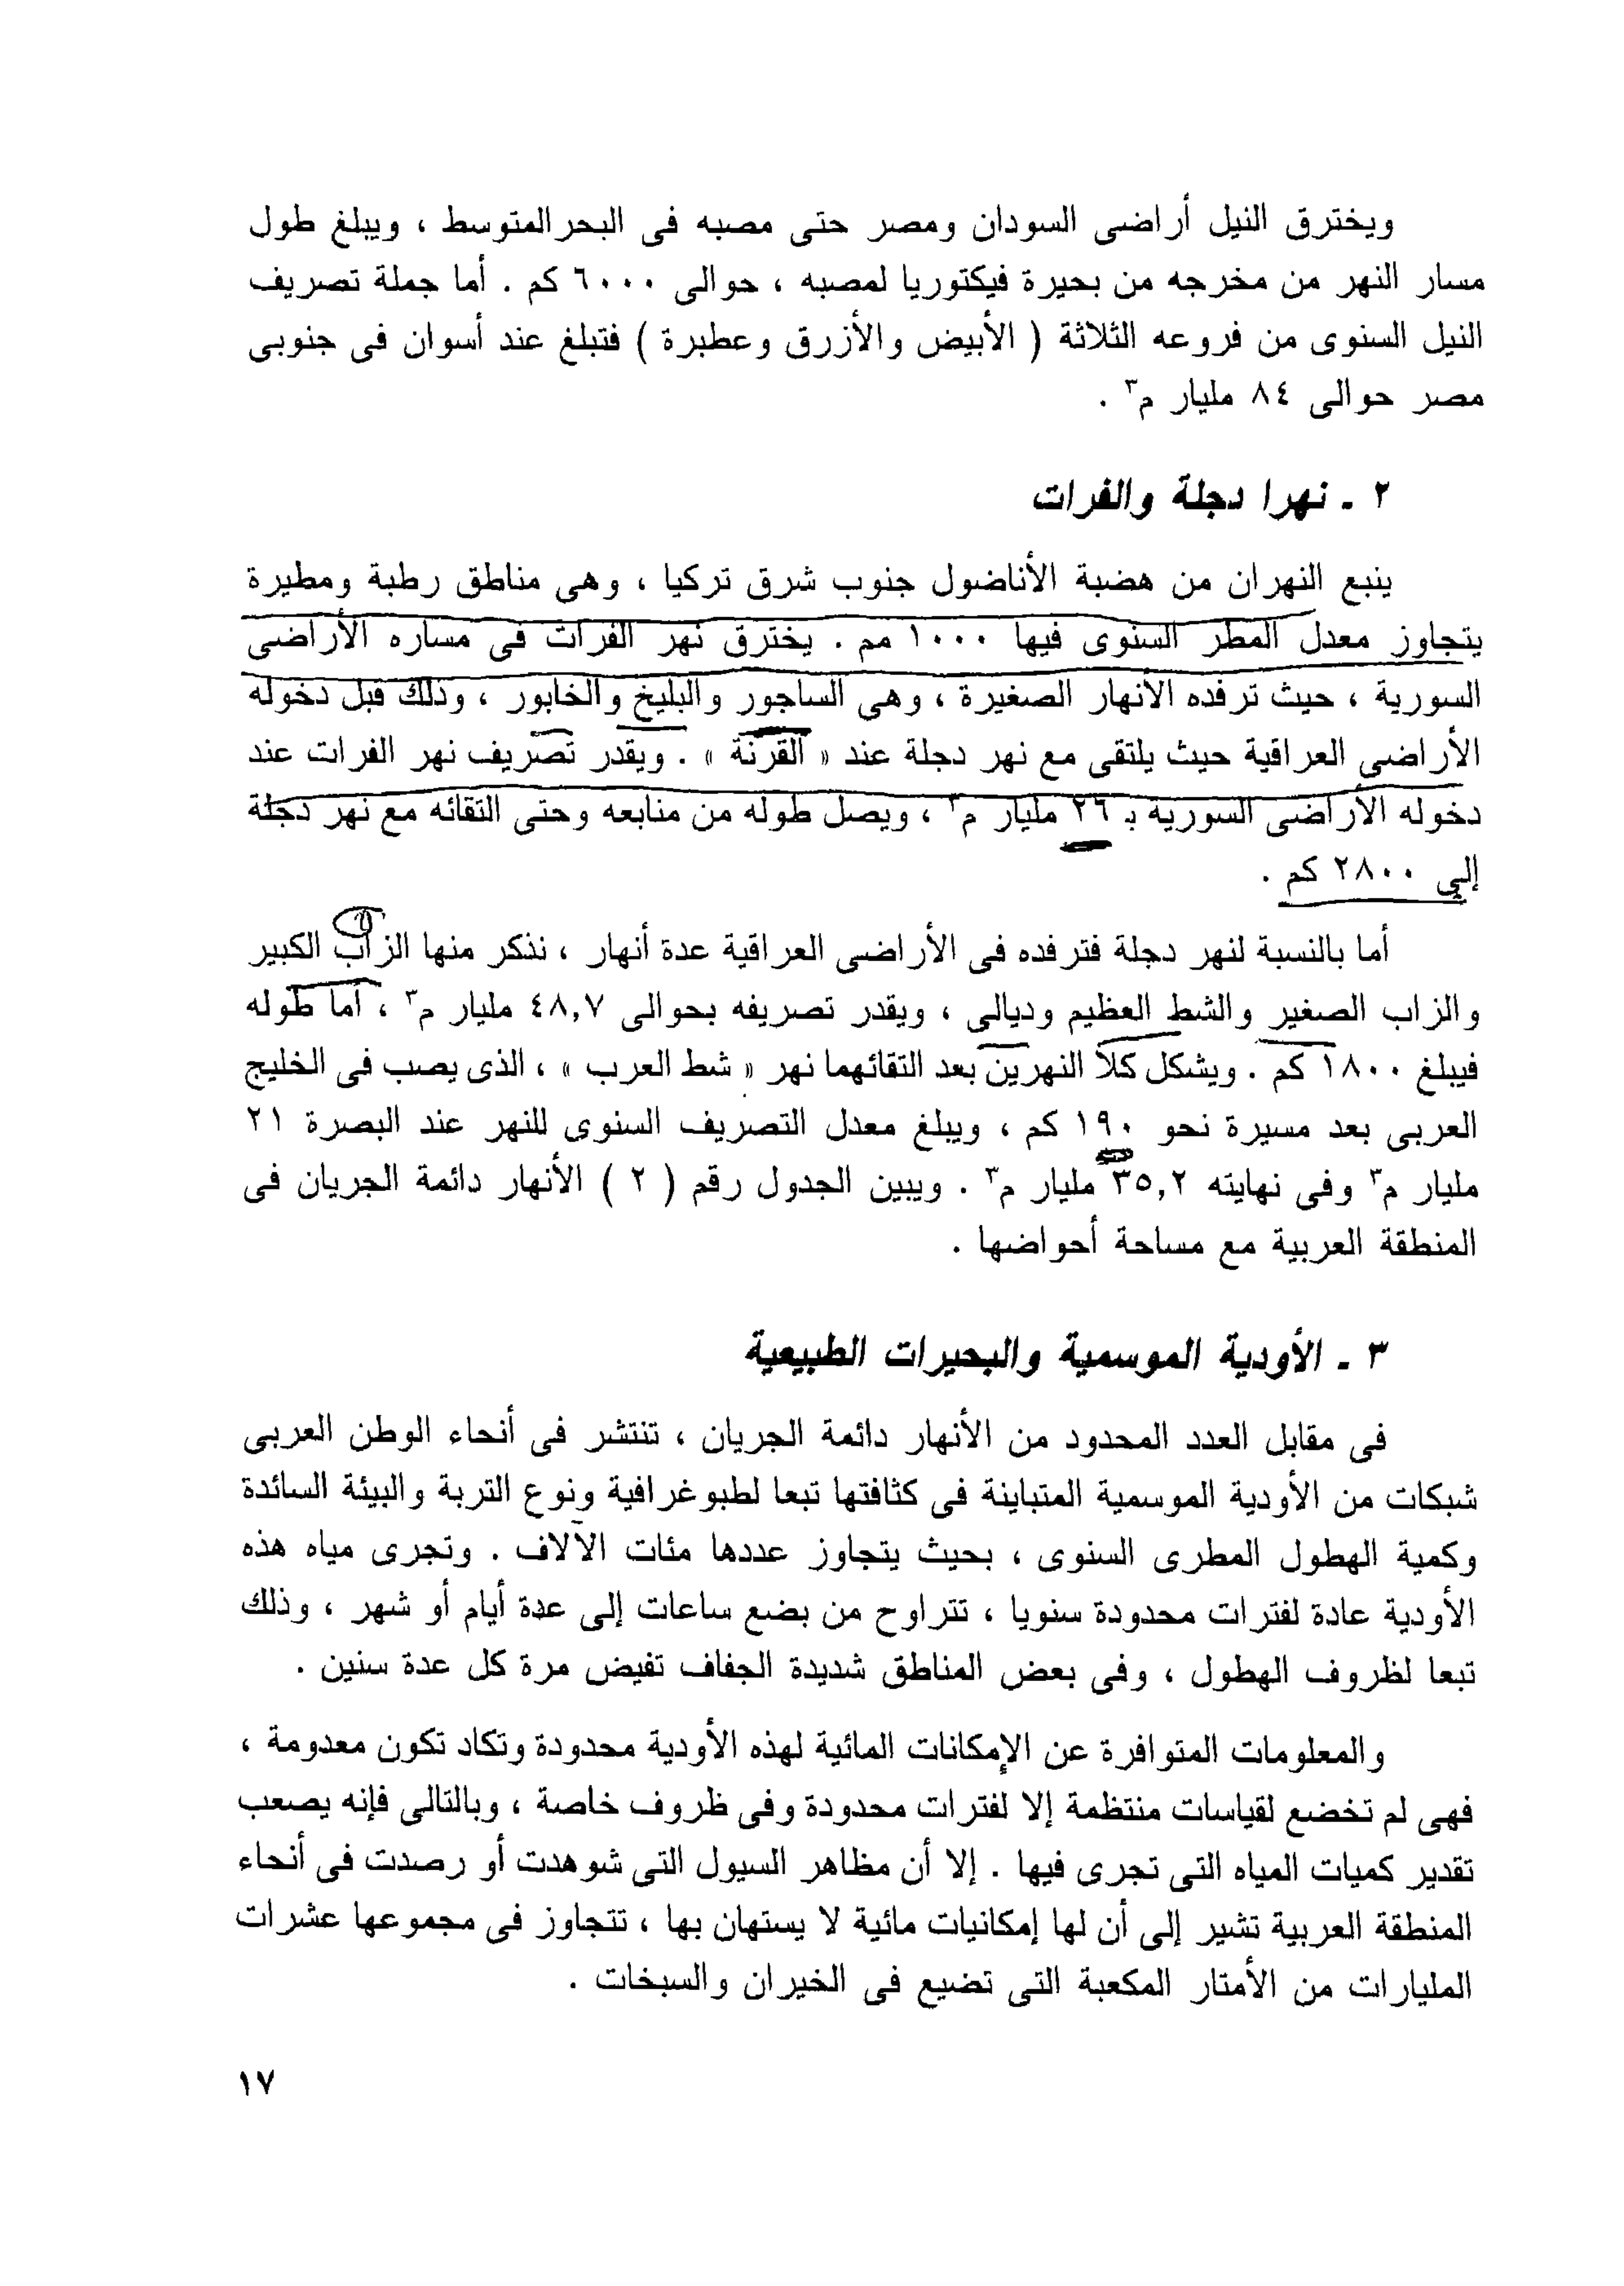 ويخترق النيل أراضى السودان ومصر حتى مصبه فى البحر المتوسط ، ويبلغ طول
مسار النهر من مخرجه من بحيرة فيكتوريا لمصبه ، حوالى ٦٠٠٠ كم . أما جملة تصريف
النيل السنوى من فروعه الثلاثة ( الأبيض والأزرق وعطبرة ) فتبلغ عند أسوان فى جنوبى
مصر حوالى ٨٤ مليار م٣ .
٢ ـ نهرا دجلة والفرات
ينبع النهران من هضبة الأناضول جنوب شرق تركيا ، وهى مناطق رطبة ومطيرة
يتجاوز معدل المطر السنوى فيها ١٠٠٠ مم . يخترق نهر الفرات فى مساره الأراضى
السورية ، حيث ترفده الأنهار الصغيرة ، وهى الساجور والبليخ والخابور ، وذلك قبل دخوله
الأراضى العراقية حيث يلتقى مع نهر دجلة عند « القرنة » . ويقدر تصريف نهر الفرات عند
دخوله الأراضى السورية بـ ٢٦ مليار م٣ ، ويصل طوله من منابعه وحتى التقائه مع نهر دجلة
إلى ٢٨٠٠ كم .
أما بالنسبة لنهر دجلة فترفده فى الأراضى العراقية عدة أنهار ، نذكر منها الزاب الكبير
والزاب الصغير والشط العظيم وديالى ، ويقدر تصريفه بحوالى ٤٨,٧ مليار م٣ ، أما طوله
فيبلغ ١٨٠٠ كم . ويشكل كلا النهرين بعد التقائهما نهر « شط العرب » ، الذى يصب فى الخليج
العربى بعد مسيرة نحو ١٩٠ كم ، ويبلغ معدل التصريف السنوى للنهر عند البصرة ٢١
مليار م٣ وفى نهايته ٣٥,٢ مليار م٣ . ويبين الجدول رقم ( ٢ ) الأنهار دائمة الجريان فى
المنطقة العربية مع مساحة أحواضها .
٣ ـ الأودية الموسمية والبحيرات الطبيعية
فى مقابل العدد المحدود من الأنهار دائمة الجريان ، تنتشر فى أنحاء الوطن العربى
شبكات من الأودية الموسمية المتباينة فى كثافتها تبعا لطبوغرافية ونوع التربة والبيئة السائدة
وكمية الهطول المطرى السنوى ، بحيث يتجاوز عددها مئات الآلاف . وتجرى مياه هذه
الأودية عادة لفترات محدودة سنويا ، تتراوح من بضع ساعات إلى عدة أيام أو شهر ، وذلك
تبعا لظروف الهطول ، وفى بعض المناطق شديدة الجفاف تفيض مرة كل عدة سنين .
والمعلومات المتوافرة عن الإمكانات المائية لهذه الأودية محدودة وتكاد تكون معدومة ،
فهى لم تخضع لقياسات منتظمة إلا لفترات محدودة وفى ظروف خاصة ، وبالتالى فإنه يصعب
تقدير كميات المياه التى تجرى فيها . إلا أن مظاهر السيول التى شوهدت أو رصدت فى أنحاء
المنطقة العربية تشير إلى أن لها إمكانيات مائية لا يستهان بها ، تتجاوز فى مجموعها عشرات
المليارات من الأمتار المكعبة التى تضيع فى الخيران والسبخات .
١٧